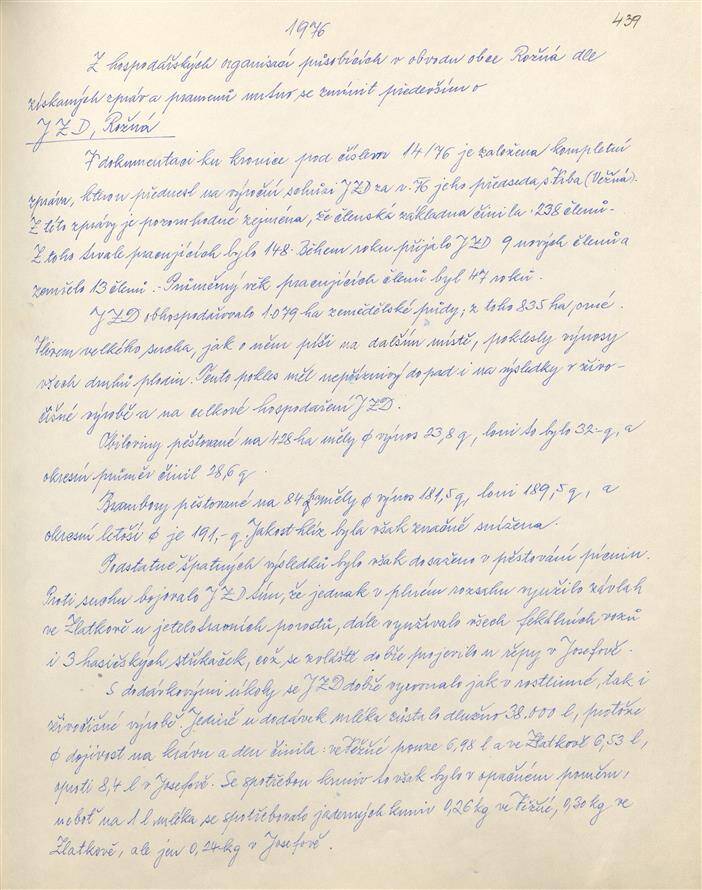 1976
439
Z hospodářských organisací působících v obvodu obce Rožná dle
získaných zpráv a pramenů nutno se zmínit především o
JZD, Rožná
V dokumentaci ku kronice pod číslem 14/76 je založena kompletní
zpráva, kterou přednesl na výroční schůzi JZD za r. 76 jeho předseda, s. (Věžná).
Z této zprávy je pozoruhodné zejména, že členská základna činila 238 členů.
Z toho trvale pracujících bylo 148. Během roku přijalo JZD 9 nových členů a
zemřelo 13 členů. - Průměrný věk pracujících členů byl 47 roků.
JZD obhospodařovalo 1.079 ha zemědělské půdy; z toho 835 ha, orné.
Vlivem velkého sucha, jak o něm píši na dalším místě, poklesly výnosy
všech druhů plodin. Tento pokles měl nepříznivý dopad i na výsledky v živo-
čišné výrobě a na celkové hospodaření JZD.
Obiloviny pěstované na 428 ha měly ϕ výnos 23,8 q, loni to bylo 32.- q, a
okresní průměr činil 28,6 q.
Brambory pěstované na 84 ha měly ϕ výnos 181,5 q, loni 189,5 q, a
okresní letoší ϕ je 191,- q. Jakost hlíz byla však značně snížena.
Podstatně špatných výsledků bylo však dosaženo v pěstování pícnin.
Proti suchu bojovalo JZD tím, že jednak v plném rozsahu využilo závlah
ve Zlatkově u jetelotravních porostů, dále využívalo všech fekálních vozů
i 3 hasičských stříkaček, což se zvláště dobře projevilo u řepy v Josefově.
S dodávkovými úkoly se JZD dobře vyrovnalo jak v rostlinné, tak i
živočišné výrobě. Jedině u dodávek mléka zůstalo dlužno 38.000 l, protože
ϕ dojivost na krávu a den činila: ve Věžné pouze 6,98 l a ve Zlatkově 6,53 l,
oproti 8,4 l v Josefově. Se spotřebou krmiv to však bylo v opačném poměru,
neboť na 1 l mléka se spotřebovalo jaderných krmiv 0,26 kg ve Věžné, 0,30 kg ve
Zlatkově, ale jen 0,24 kg v Josefově.